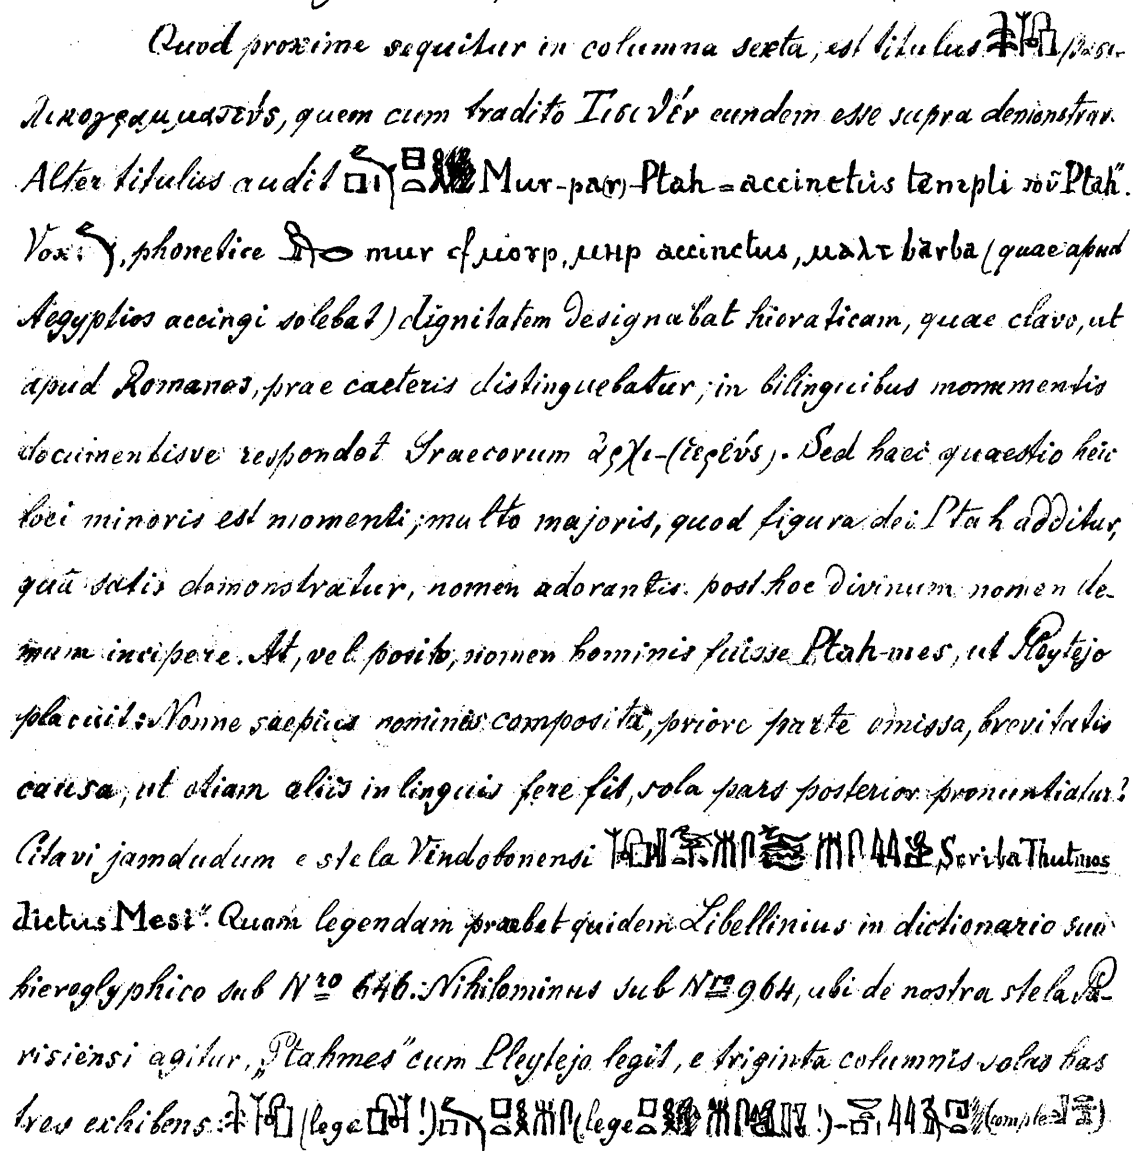 Quod proxime sequitur in columna sexta, est titulus βασι-
λικογραμματεύς, quem cum tradito Τισιθέν eundem esse supra demonstrav.
Alter titulus audit Mur-pa(r)-Ptah = accinctus templi τοῦ Ptah".
Vox, phonetice mur cf ⲙⲟⲩⲣ, ⲙⲏⲣ accinctus, ⲙⲁⲗⲧ barba (quae apud
Aegyptios accingi solebat) dignitatem designabat hieraticam, quae clavo, ut
apud Romanos, prae caeteris distinguebatur; in bilinguibus monumentis
documentisve respondet Graecorum ἀρχι-(ιερεύς). Sed haec quaestio heic
loci minoris est momenti; multo majoris, quod figura dei Ptah additur,
quā satis demonstratur, nomen adorantis post hoc divinum nomen de-
mum incipere. At, vel posito, nomen hominis fuisse Ptah-mes, ut Pleytejo
placuit: Nonne saepius nominis compositi, priore parte omissa, brevitatis
causa, ut etiam aliis in linguis fere fit, sola pars posterior pronuntiatur?
Citavi jamdudum e stela Vindobonensi „Scriba Thutmos
dictus Mesi". Quam legendam praebet quidem Libellinius in dictionario suo
hieroglyphico sub Nro 646. Nihilominus sub Nro 964, ubi de nostra stela Pa-
risiensi agitur, „Ptahmes" cum Pleytejo legit, e triginta columnis solas has
tres exhibens: (lege !) (lege !) - (comple )